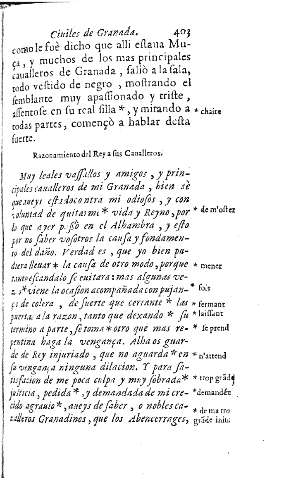 Ciuiles de Granada. 403
como le fuè dicho que alli estaua Mu-
ça, y muchos de los mas principales
caualleros de Granada, saliò a la sala,
todo vestido de negro, mostrando el
semblante muy apassionado y triste,
assentose en su real silla *, y mirando a * chaire
todas partes, començò a hablar desta
suerte.
Razonamiento del Rey a sus Caualleros.
Muy leales vassallos y amigos, y prin-
cipales caualleros de mi Granada, bien sè
que aueys estado contra mi odiosos, y con
voluntad de quitarme * vida y Reyno, por * de m'ostez
lo que ayer passò en el Alhambra, y esto
por no saber vosotros la causa y fundamen-
to del daño. Verdad es, que yo bien pu-
diera lleuar * la causa de otro modo, porque * mener
tanto escandalo se euitara: mas algunas ve-
zes * viene la ocasion acompañada con pujan- * fois
ça de colera, de suerte que cerrante * las * fermant
puertas a la razon, tanto que dexando * su * laissant
termino a parte, se toma * otro que mas re- * se prend
pentina haga la vengança. Alha os guar-
de de Rey injuriado, que no aguarda * en * n'attend
su vengança ninguna dilacion. Y para sa-
tisfacion de me poca culpa y muy sobrada * * trop grãde
justicia, pedida *, y demandada de mi cre- * demandée
cido agrauio *, aueys de saber, o nobles ca- * de ma tro
ualleros Granadinos, que los Abencerrages, grãde iniu: